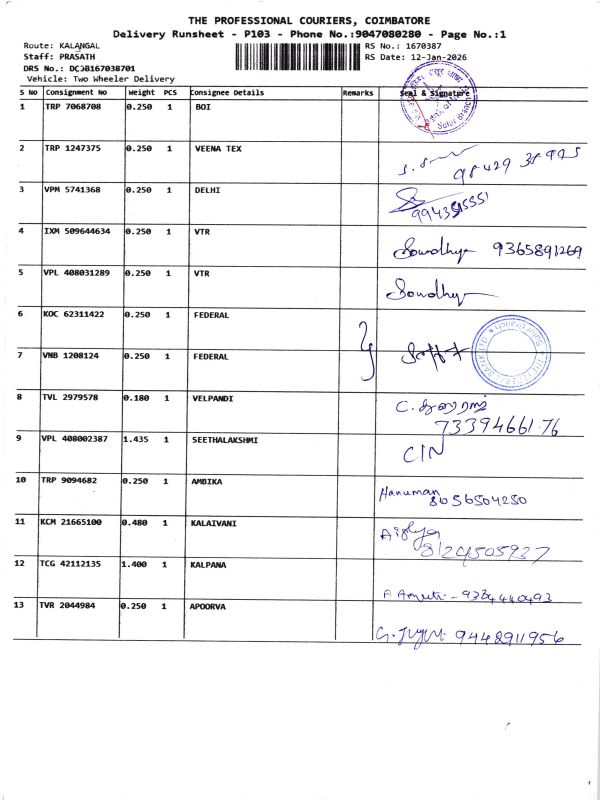 THE PROFESSIONAL COURIERS, COIMBATORE
Delivery Runsheet - P103 - Phone No.:9047080280 - Page No.:1
Route: KALANGAL RS No.: 1670387
Staff: PRASATH RS Date: 12-Jan-2026
DRS No.: DCJB167038701
Vehicle: Two Wheeler Delivery
S No Consignment No Weight PCS Consignee Details Remarks Seal & Signature
1 TRP 7068708 0.250 1 BOI
2 TRP 1247375 0.250 1 VEENA TEX
3 VPM 5741368 0.250 1 DELHI
4 IXM 509644634 0.250 1 VTR Sowdhya 9365891269
5 VPL 408031289 0.250 1 VTR Sowdhya
6 KOC 62311422 0.250 1 FEDERAL
7 VNB 1208124 0.250 1 FEDERAL
8 TVL 2979578 0.180 1 VELPANDI
7339466176
9 VPL 408002387 1.435 1 SEETHALAKSHMI C/N
10 TRP 9094682 0.250 1 AMBIKA Hanuman
8056504250
11 KCM 21665100 0.480 1 KALAIVANI
8124505937
12 TCG 42112135 1.400 1 KALPANA
13 TVR 2044984 0.250 1 APOORVA 9442911956